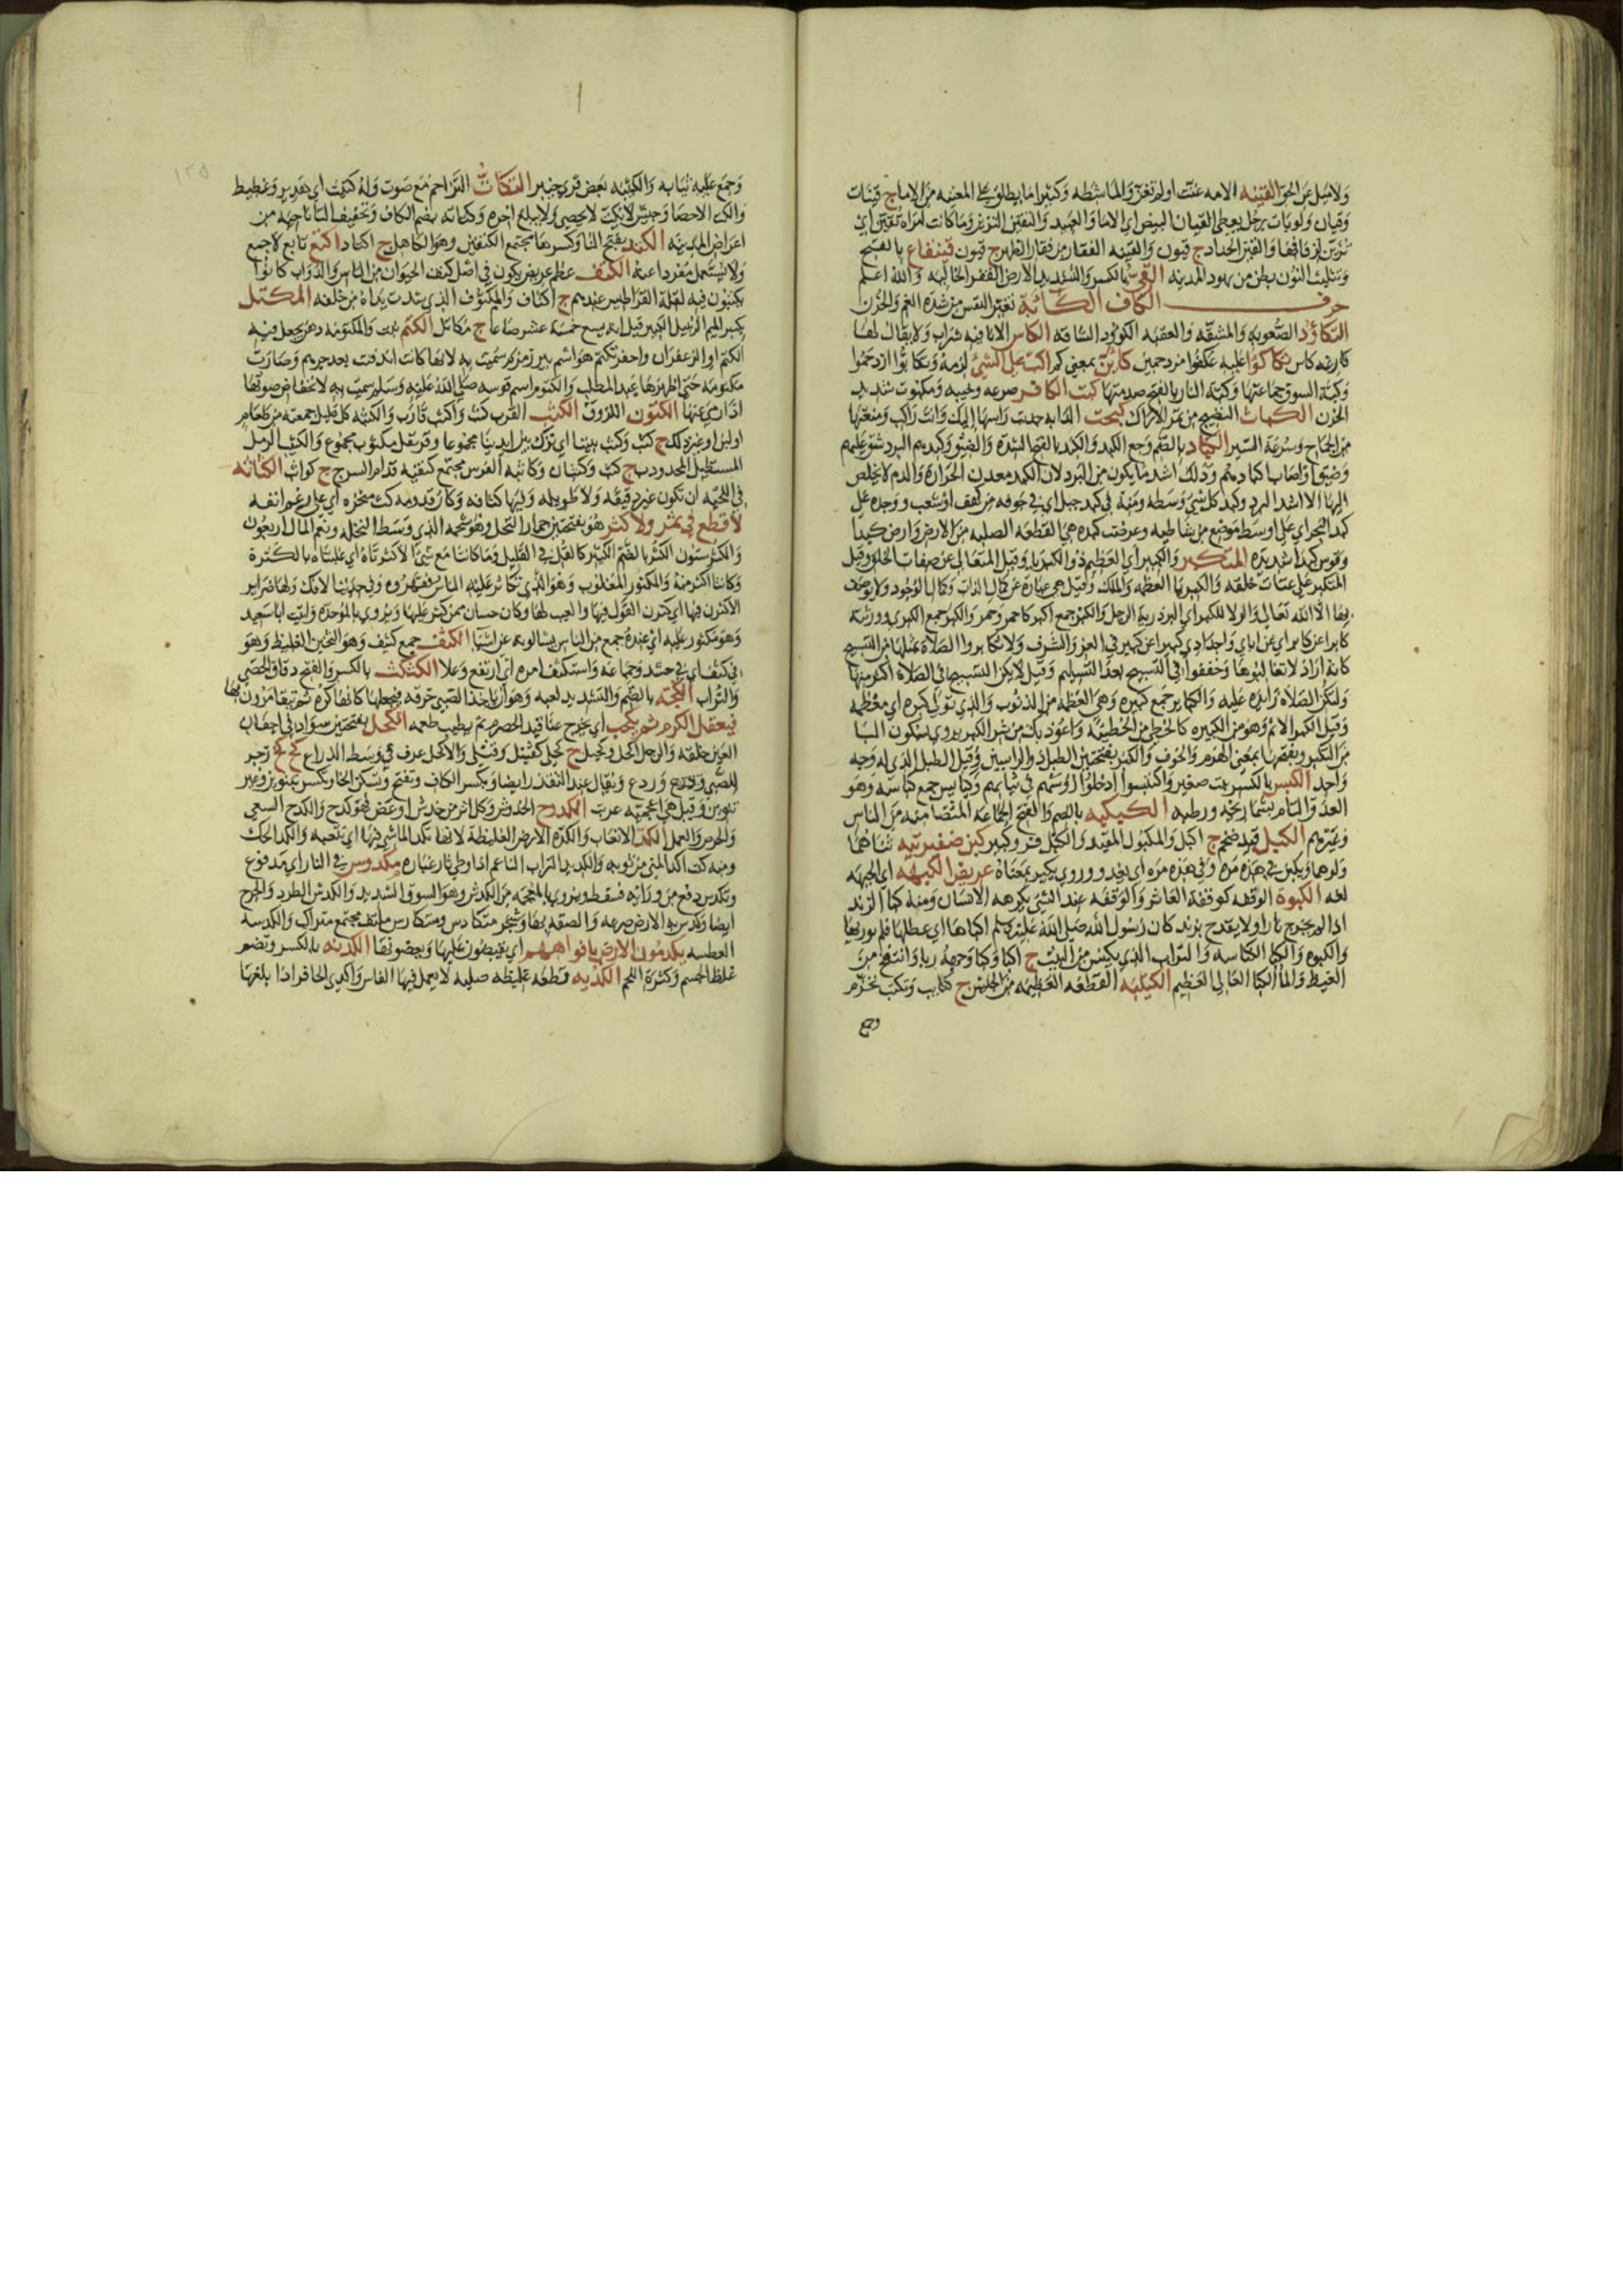 ولا تسل عن الخبر القينه الامه غنت اولم تغن والماشطه وكثيرا ما يطلق على المغنيه من الاماج قينات
وقيان ولو بات رجل يعطي القيان البيض اي الاما والعبيد والتقين التزين وما كانت امراه تقين اي
تزين لزفافها والقين الحداد ج قيون والقينه الفقار من فقار الظهر ج قيون قينقاع بالفتح
وتثليث النون بطن من يهود المدينه القي بالكسر والتشديد الارض القفر الخاليه والله اعلم
حرف الكاف الكآبة تغير النفس من شدة الغم والحزن
التكاؤد الصعوبه والمشقه والعقبه الكؤود الشاقه الكاس الانا فيه شراب ولا يقال لها
كاس تكاكوا عليه عكفوا مزدحمين كاين بمعنى كم اكب على الشئ لزمه وتكابوا ازدحموا
وكبة السوق جماعتها وكبة النار بالفتح صدمتها كبت الكافر صرعه وخيبه ومكبوت شديد
الحزن الكباث النضيج من ثمر الاراك كبحت الدابه جذبت راسها اليك وانت راكب ومنعتها
من الجماح وسرعة السير الكباد بالضم وجع الكبد والكبد بالفتح الشدة والضيق وكبدهم البرد شق عليهم
وضيق واصاب اكبادهم وذلك اشد ما يكون من البرد لان الكبد معدن الحرارة والدم لا يخلص
اليها الا اشد البرد وكبد كل شي وسطه ومنه في كبد جبل اي في جوفه من كهف او شعب ووجده على
كبد البحر اي على اوسط موضع من شاطيه وعرفت كبده هي القطعه الصلبه من الارض وارض كبدا
وقوس كبدا شديدة المتكبر والكبير اي العظيم ذو الكبريا وقيل المتعالي عن صفات الخلق وقيل
المتكبر على عتاة خلقه والكبريا العظمه والملك وقيل هي عبارة عن كمال الذات وكمال الوجود ولا يوصف
بها الا الله تعالى والولا للكبر اي اكبر ذرية الرجل والكبر جمع اكبر كاحمر وحمر والكبر جمع الكبرى وورثته
كابرا عن كابر اي عن اباي واجدادي كبيرا عن كبير في العز والشرف ولا تكابروا الصلاة بمثلها من التسبيح
كانه اراد لا تغالبوها وخففوا في التسبيح بعد التسليم وقيل لا يكن التسبيح في الصلاة اكثر منها
ولتكن الصلاة زايدة عليه والكباير جمع كبيره وهي العظمه من الذنوب والذي تولى كبره اي معظمه
وقيل الكبر الاثم وهو من الكبيره كالخطى من الخطيئه واعوذ بك من شر الكبر يروى بسكون البا
من التكبر وبفتحها بمعنى الهرم والخرف والكبر بفتحتين الطبل ذو الراسين وقيل الطبل الذي له وجه
واحد الكبس بالكسر بيت صغير واكتبسوا ادخلوا رؤسهم في ثيابهم وكبايس جمع كباسه وهو
العذق التام بشماريخه ورطبه الكبكبه بالضم والفتح الجماعة المتضامنه من الناس
وغيرهم الكبل قيد ضخم ج اكبل والمكبول المقيد
اي الجبهه
لغه الكبوة الوقفه كوقفة العاثر والوقفه عند الشئ يكرهه الانسان ومنه كبا الزند
اذا لم يخرج نارا ولا يقدح بزند كان رسول الله صلى الله عليه وسلم اكباها اي عطلها فلم يور بها
والكبوه والكبا الكناسه والتراب الذي يكنس من البيت ج اكبا وكبا وجهه ربا وانتفخ من
الغيظ والما الكبا العالي العظيم الكتيبه القطعه العظيمه من الجيش ج كتايب وتكتب تحزم
وجمع عليه ثيابه والكتيبه بعض قرى خيبر التكات التزاحم مع صوت وله كتيت اي هدير وغطيط
والكت الاحصا وجيش لا يكت لا يحصى ولا يبلغ اخره وكتانه بضم الكاف وتخفيف التا ناحيه من
اعراض المدينه الكتد بفتح التا وكسرها مجتمع الكتفين وهو الكاهل ج اكتاد اكتع تابع لاجمع
ولا يستعمل مفردا عنه الكتف عظم عريض يكون في اصل كتف الحيوان من الناس والدواب كانوا
يكتبون فيه لقلة القراطيس عندهم ج اكتاف والمكتوف الذي شدت يداه من خلفه المكتل
بكسر الميم الزنبيل الكبير قيل انه يسع خمسة عشر صاعا ج مكاتل الكتم نبت والمكتومه دهن يجعل فيه
الكتم او الزعفران واحفر تكتم هو اسم بير زمزم سميت به لانها كانت اندفنت بعد جرهم وصارت
مكتومه حتى اظهرها عبد المطلب والكتوم اسم قوسه صلى الله عليه وسلم سميت به لانخفاض صوتها
اذا رمي عنها الكتون اللزوق الكثب القرب كثب واكثب قارب والكثبه كل قليل جمعته من طعام
اولبن او غيره لك ج كثب وكثب بيننا اي نزل بين ايدينا مجموعا وقرنفل مكثوب مجموع والكثيب الرمل
المستطيل المحدودب ج كثب وكثبان وكاثبه الفرس مجتمع كتفيه قدام السرج ج كواثب الكثاثه
في اللحيه ان تكون غير دقيقه ولا طويله وفيها كثافه وكان قدومه كث منخره اي على رغم انفه
لا قطع في ثمر ولا كثر هو بفتحتين جمار النخل وهو شحمه الذي وسط النخله ونعم المال اربعون
والكثر ستون الكثر بالضم الكثير كالقل في القليل وما كانتا مع شي الا كثرتاه اي غلبتاه بالكثرة
وكانتا اكثر منه والمكثور المغلوب وهو الذي تكاثر عليه الناس فقهروه وفي حديث الافك ولها ضراير
الا كثرن فيها اي كثرن القول فيها والعيب لها وكان حسان ممن كثر عليها ويروى بالموحده واتيت ابا سعيد
وهو مكثور عليه اي عنده جمع من الناس يسالونه عن اشيا الكثف جمع كثيف وهو الثخين الغليظ وهو
في كثف اي في حشد وجماعة واستكثف امره اي ارتفع وعلا الكثكث بالكسر والفتح دقاق الحصى
والتراب الكجه بالضم والتشديد لعبه وهو ان ياخذ الصبي خرقه فيجعلها كانها كره ثم يتقامرون بها
فيعقل الكرم ثم يكحب اي يخرج عناقيد الحصرم ثم يطيب طعمه الكحل بفتحتين سواد في اجفان
العين خلقه والرجل اكحل وكحيل ج كحلى كقتيل وقتلى والاكحل عرق في وسط الذراع كخ كخ زجر
للصبي وردع ويقال عند التقذر ايضا وبكسر الكاف وتفتح وتسكن الخا وتكسر بتنوين وغير
تنوين وقيل هي اعجميه عربت الكدوح الخدوش وكل اثر من خدش او عض فهو كدح والكدح السعي
والحرص والعمل الكد الاتعاب والكدة الارض الغليظة لانها تكد الماشي فيها اي تتعبه والكد الحك
ومنه كنت اكد المني من ثوبه والكديد التراب الناعم اذا وطي ثار غباره مكدوس في النار اي مدفوع
وتكدس دفع من ورائه فسقط ويروى بالمعجمه من الكدش وهو السوق الشديد والكدش الطرد والجرح
ايضا وكدس به الارض صرعه والصقه بها وشجر متكادس ومتكارس ملتف مجتمع متراكب والكدسه
العطسه يكدمون الارض بافواههم اي يقبضون عليها ويعضونها الكدنه بالكسر وتضم
غلظ الجسم وكثرة اللحم الكديه قطعه غليظه صلبه لا يعمل فيها الفاس واكدى الحافر اذا بلغها